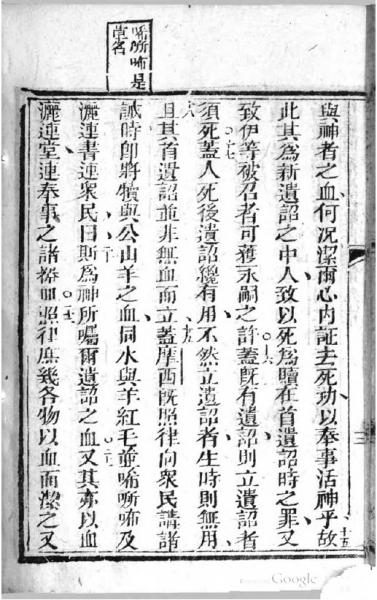 唏噺咘是
草名
與神者之血何況潔爾心內証去死功以奉事活神乎故十五
此其為新遺詔之中人致以死為贖在首遺詔時之罪又
致伊等被召者可獲永嗣之許蓋既有遺詔則立遺詔者
須死蓋人死後遺詔纔有用不然立遺詔者生時則無用
且其首遺詔並非無血而立蓋摩西既照律向眾民講諸
誡時即將犢與公山羊之血同水與羊紅毛並唏噺咘及
灑連書連眾民曰則為神所囑爾遺詔之血又其亦以血
灑連堂連奉事之諸器皿照律庶幾各物以血而潔之又
Google